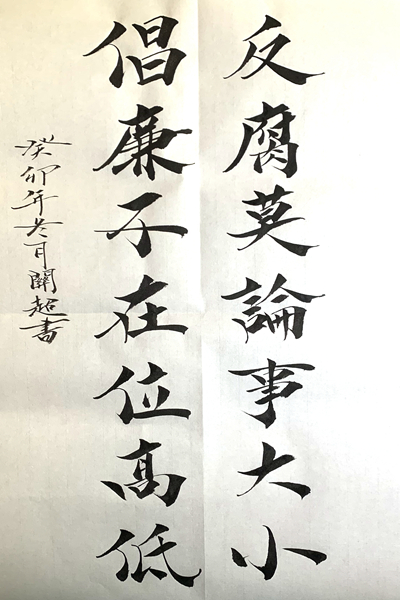 反腐莫論事大小
倡廉不在位高低
癸卯年冬月關超書